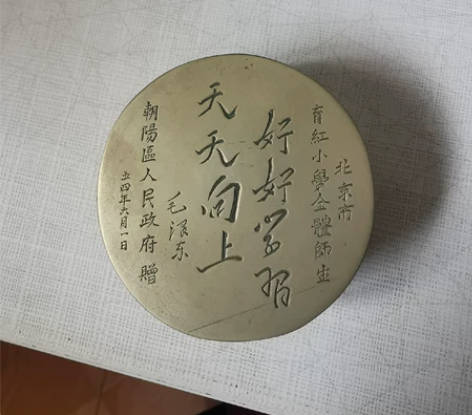 北京市
育紅小學全體師生
好好学习
天天向上
毛泽东
朝陽區人民政府 贈
五四年六月一日